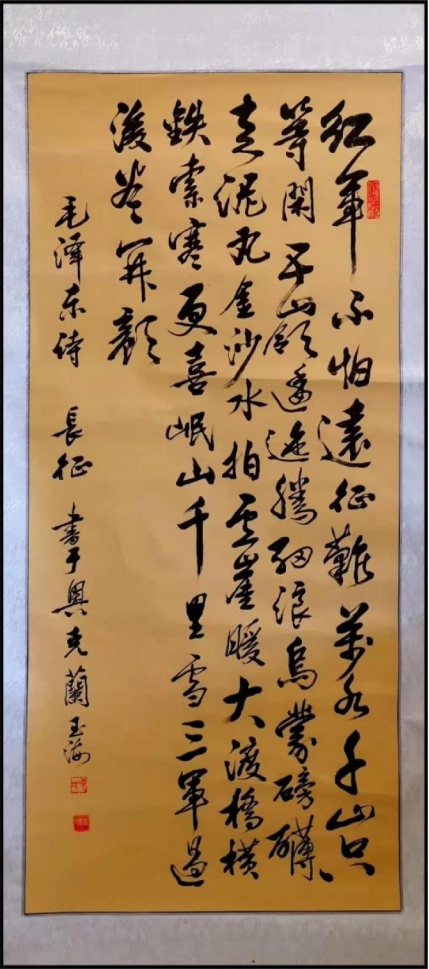 紅軍不怕遠征難萬水千山只
等閑五嶺逶迤騰細浪烏蒙磅礴
走泥丸金沙水拍云崖暖大渡橋橫
鉄索寒更喜岷山千里雪三軍過
後盡開顏
毛泽东诗 長征 書于奧克蘭 玉海